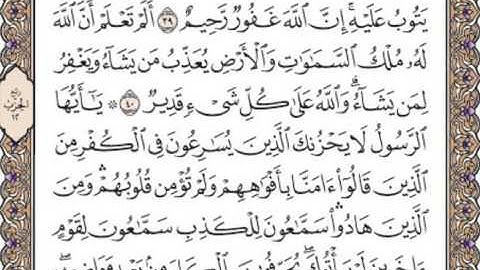 يَتُوبُ عَلَيْهِ ۗ إِنَّ ٱللَّهَ غَفُورٌ رَّحِيمٌ ۝٣٩ أَلَمْ تَعْلَمْ أَنَّ ٱللَّهَ
لَهُۥ مُلْكُ ٱلسَّمَـٰوَٰتِ وَٱلْأَرْضِ يُعَذِّبُ مَن يَشَآءُ وَيَغْفِرُ
لِمَن يَشَآءُ ۗ وَٱللَّهُ عَلَىٰ كُلِّ شَىْءٍ قَدِيرٌ ۝٤٠ ۞ يَـٰٓأَيُّهَا
ٱلرَّسُولُ لَا يَحْزُنكَ ٱلَّذِينَ يُسَـٰرِعُونَ فِى ٱلْكُفْرِ مِنَ
ٱلَّذِينَ قَالُوٓا۟ ءَامَنَّا بِأَفْوَٰهِهِمْ وَلَمْ تُؤْمِن قُلُوبُهُمْ ۛ وَمِنَ
ٱلَّذِينَ هَادُوا۟ ۛ سَمَّـٰعُونَ لِلْكَذِبِ سَمَّـٰعُونَ لِقَوْمٍ
ربع
الحزب
١٢